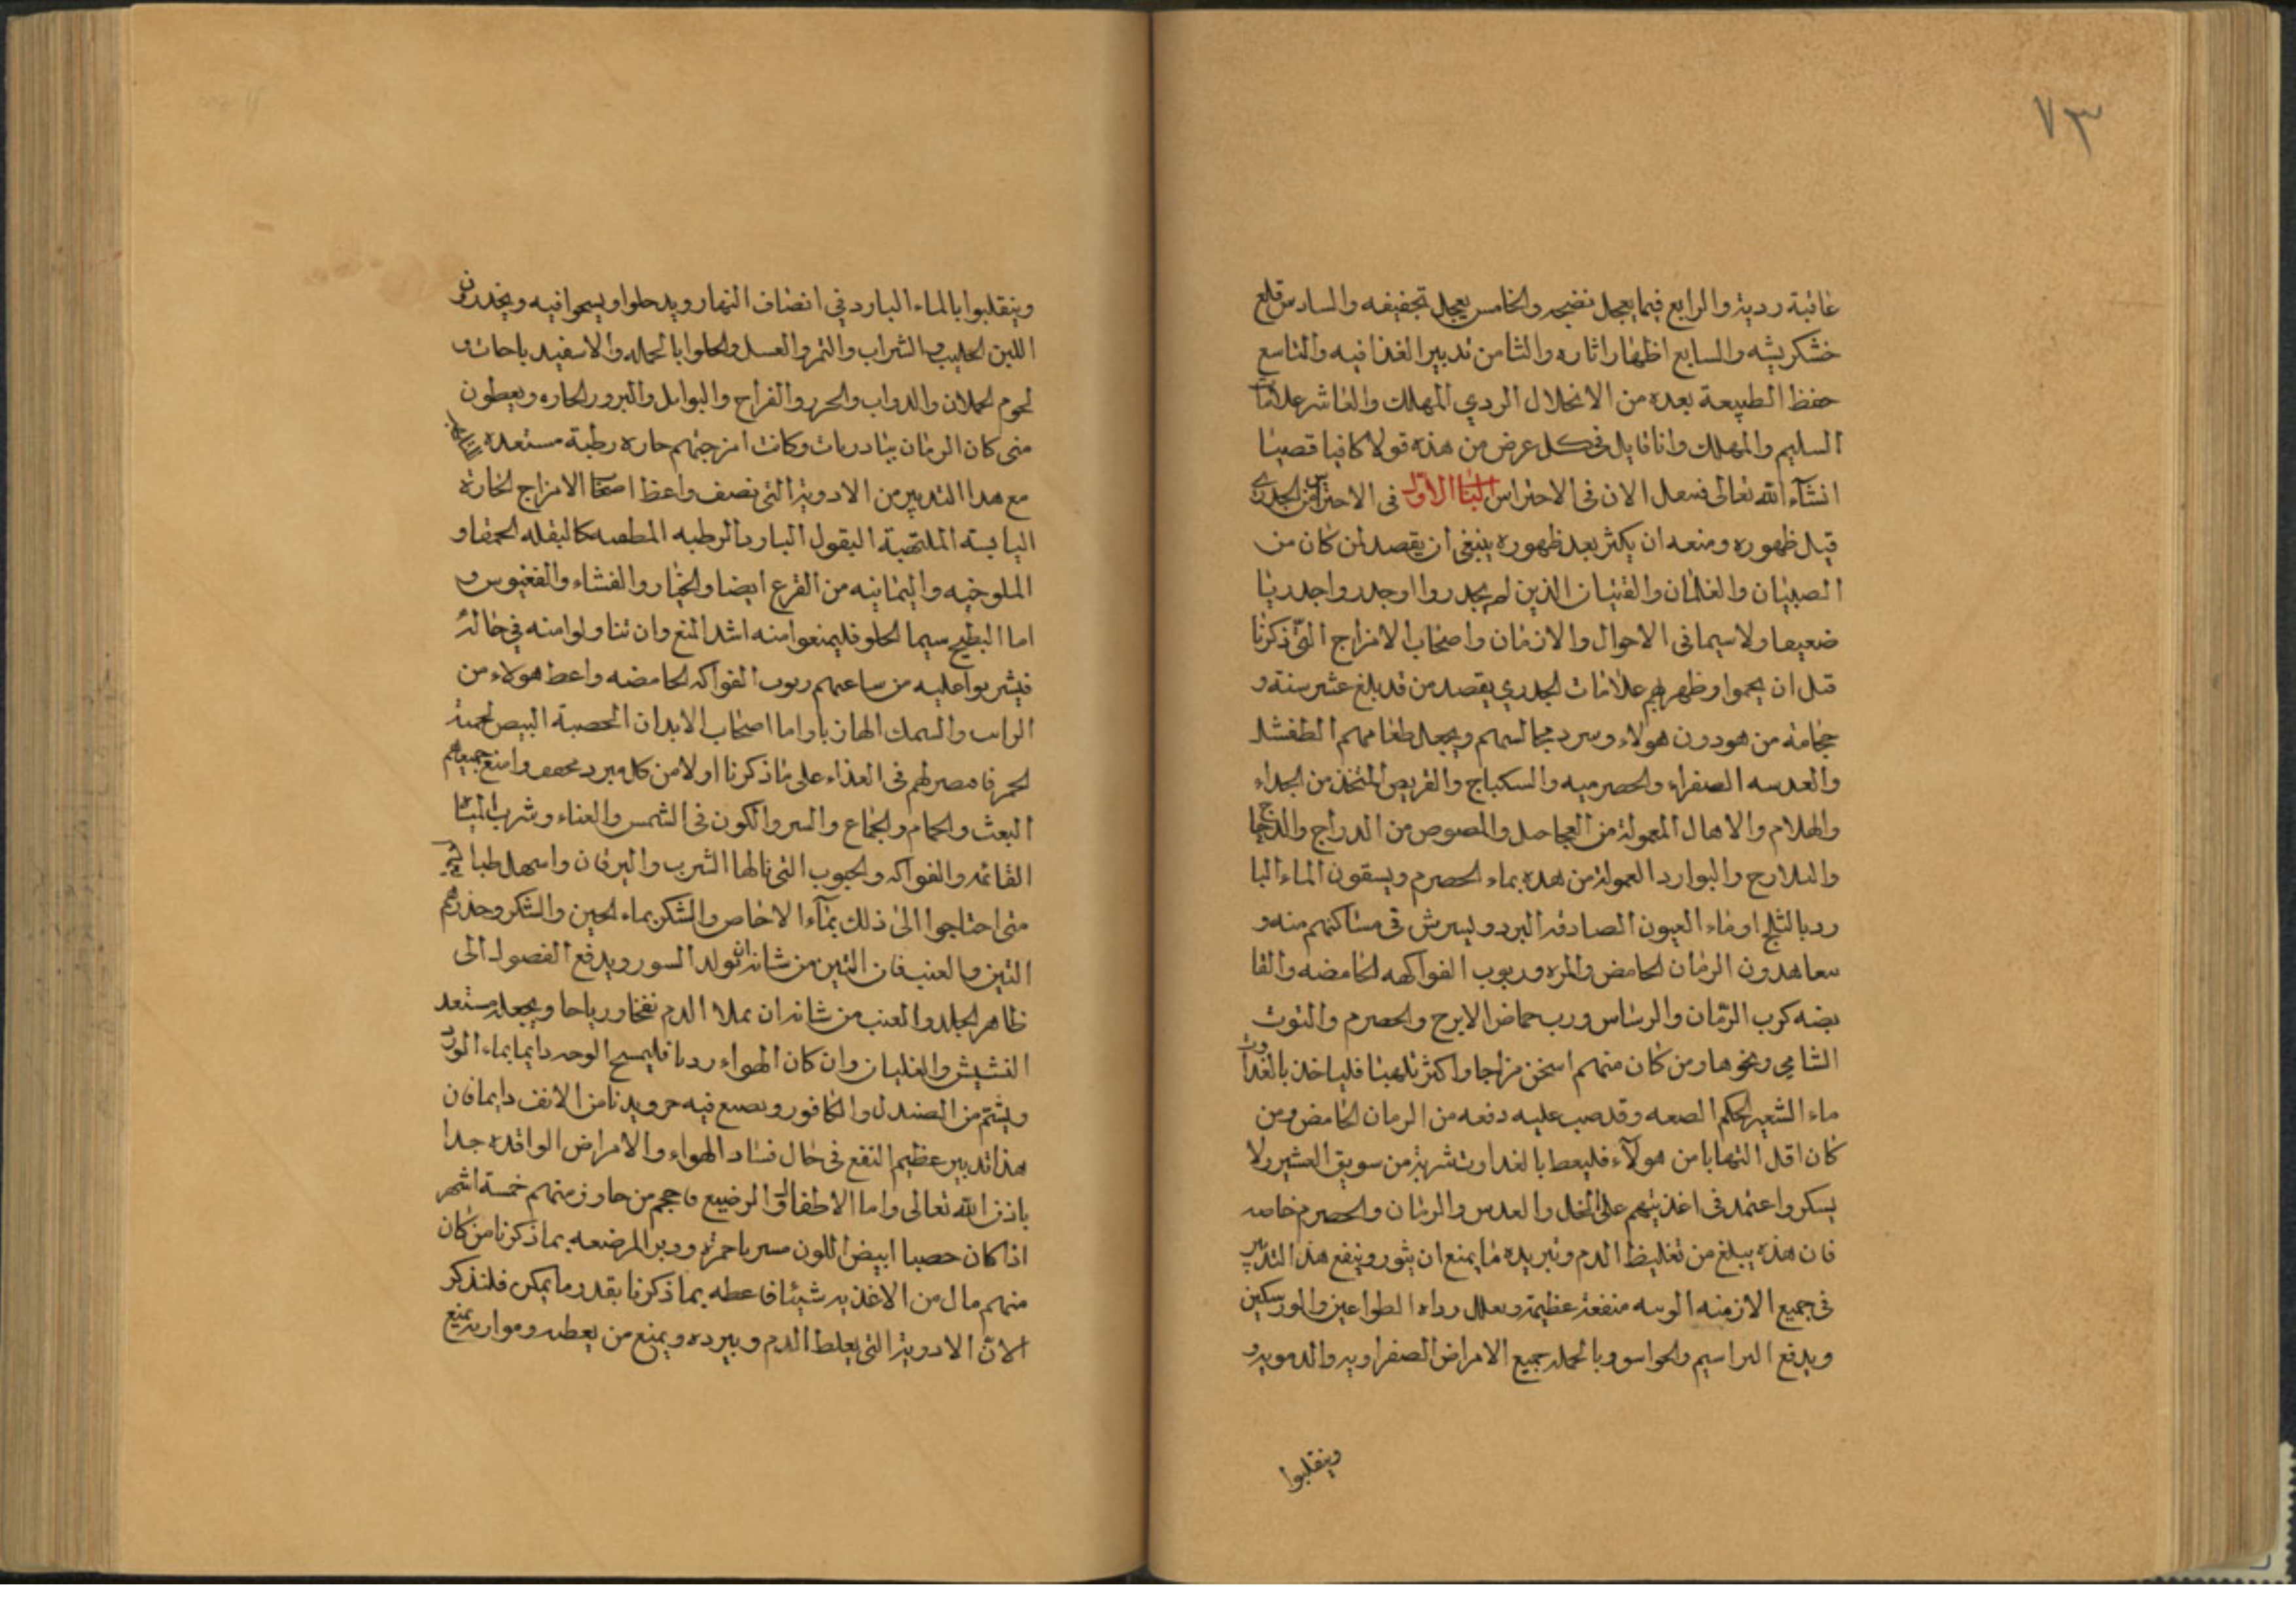 ٧٣
غائبة ردية والرابع فيما يعجل نضجه والخامس يعجل تجفيفه والسادس قلع
خشكريشه والسابع اظهار اثاره والثامن تدبير الغذا فيه والتاسع
حفظ الطبيعة بعده من الانحلال الردي المهلك والعاشر علامات
السليم والمهلك وانا قايل فى كل عرض من هذه قولا كافيا
انشآء الله تعالى الان فى الاحتراس الباب الاول فى الاحتراس من الجدري
قبل ظهوره ومنعه ان يكثر بعد ظهوره ينبغى ان يقصد لمن كان من
الصبيان والغلمان والفتيان الذين لم يجدروا او جدروا جدريا
ضعيفا ولا سيما فى الاحوال والازمان واصحاب الامزاج التى ذكرنا
قبل ان يحموا وظهر بهم علامات الجدري يفصد من قد بلغ عشر سنة و
حجامة من هو دون هولاء وبرد مجالسهم ويجعل طعامهم الطفشيل
والعدسه الصفراء والحصرميه والسكباج والقريص المتخذ من الجداء
والهلام المعمولة من العجاجيل والمصوص من الدراج والدجاج
والبوارد المعمولة من هذه بماء الحصرم ويسقون الماء البا
رد بالثلج او ماء العيون الصادقه البرد وليرش فى مساكنهم منه و
يتعاهدون الرمان الحامض والمزه وربوب الفواكه الحامضه والقا
بضه كرب الرمان والريباس ورب حماض الاترج والحصرم والتوث
الشامي ونحوها ومن كان منهم اسخن مزاجا واكثر تلهبا فلياخذ بالغداوت
ماء الشعير المحكم الصعه وقد صب عليه دفعه من الرمان الحامض ومن
كان اقل التهابا من هولآء فليعط بالغداوت شربة من سويق الشعير ولا
بسكر واعتمد فى اغذيتهم على الخل والعدس والرمان والحصرم خاصه
فان هذه يبلغ من تغليظ الدم وتبريده ما يمنع ان يثور وينفع هذا التدبير
فى جميع الازمنه الوبيه منفعة عظيمة ويقلل الطواعين
ويدفع البراسيم والخوانيق وبالجمله جميع الامراض الصفراويه والدمويه و
وينقلبوا
وينقلبوا بالماء البارد في انصاف النهار ويدخلوا ويسبحوا فيه ويحذرون
اللبن الحليب والشراب والتمر والعسل والحلوا بالجمله والاسفيد باجات و
لحوم الحملان والدواب والجزر والفراخ والتوابل والبزور الحاره ويعطون
متى كان الزمان وكانت امزجتهم حاره رطبة مستعده
مع هذا التدبير من الادوية التى نصف واعط اصحاب الامزاج الحارة
اليابسة الملتهبة البقول البارده الرطبه المطفيه كالبقله الحمقا و
الملوخيه واليمانيه من القرع ايضا والخيار والقثاء
اما البطيخ سيما الحلو فليمنعوا منه اشد المنع وان تناولوا منه في حالة
فيشربوا عليه من ساعتهم ربوب الفواكه الحامضه واعط هولاء من
الرايب والسمك الهازبا واما اصحاب الابدان الخصبة البيض لحمية
الحمر فاقتصر لهم فى الغذاء على ما ذكرنا اولا من كل مبرد مجفف وامنع جميعهم
التعب والحمام والجماع والسير والكون فى الشمس والعناء وشرب المياه
القائمه والفواكه والحبوب التى نالها الشرب واليرقان واسهل طبايعهم
متى احتاجوا الى ذلك بمآء الاجاص والسكر بماء الجبن والسكر وحذرهم
التين والعنب فان التين من شانه ان تولد البثور ويدفع الفضول الى
ظاهر الجلد والعنب من شانه ان يملا الدم نفخا ورياحا ويجعله مستعد
النشيش والغليان وان كان الهواء رديا فليمسح الوجه دايما بماء الورد
ويشتم من الصندل والكافور ويصبغ فيه خرق ويدنا من الانف دايما فان
هذا تدبير عظيم النفع فى حال فساد الهواء والامراض الوافده جدا
باذن الله تعالى واما الاطفال الرضيع فاحجم من جاوز منهم خمسة اشهر
اذا كان خصبا ابيض اللون مشربا حمرة ودبر المرضعه بما ذكرنا من كان
منهم مال من الاغذيه شيئا فاعطه بما ذكرنا بقدر ما يمكن فلنذكر
الان الادوية التى يغلظ الدم ويبرده ويمنع من